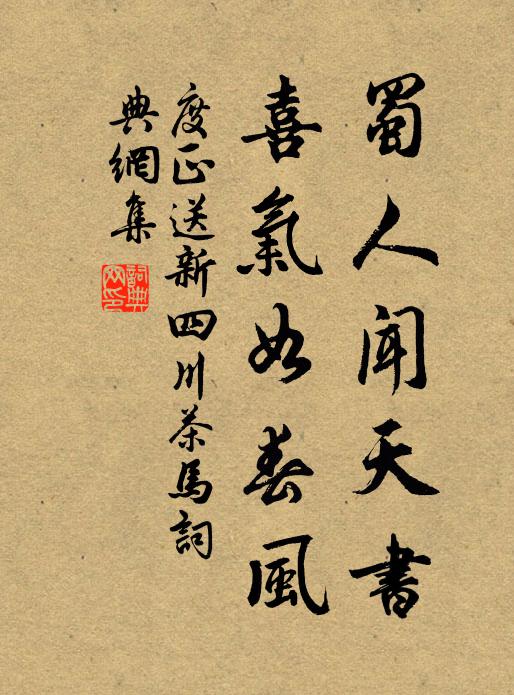 蜀人聞天書
喜氣如春風
度正送新四川茶馬詞
典網集
詞典網印